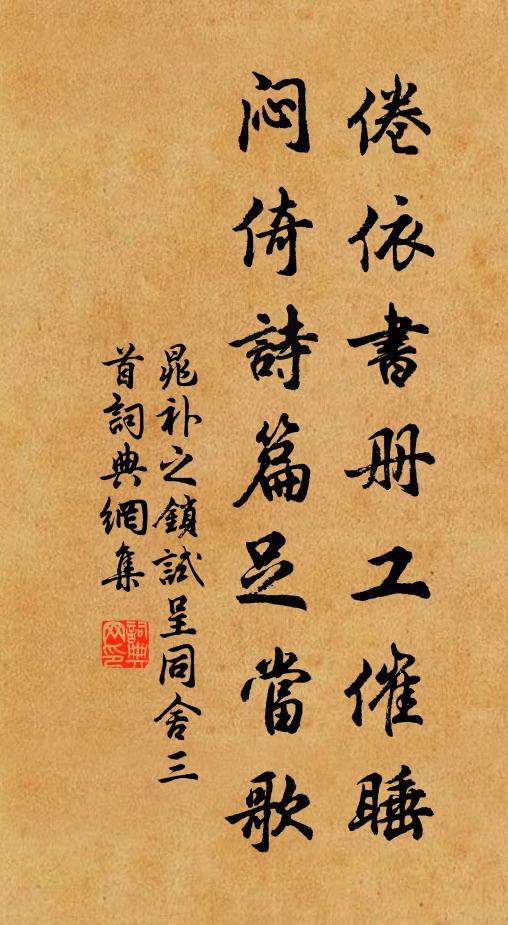 倦依書册工催睡
悶倚詩篇足當歌
晁补之鎖試呈同舍三
首詞典網集
詞典
网印